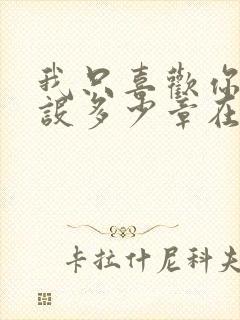 我只喜歡你
設多少章在
卡拉什尼科夫